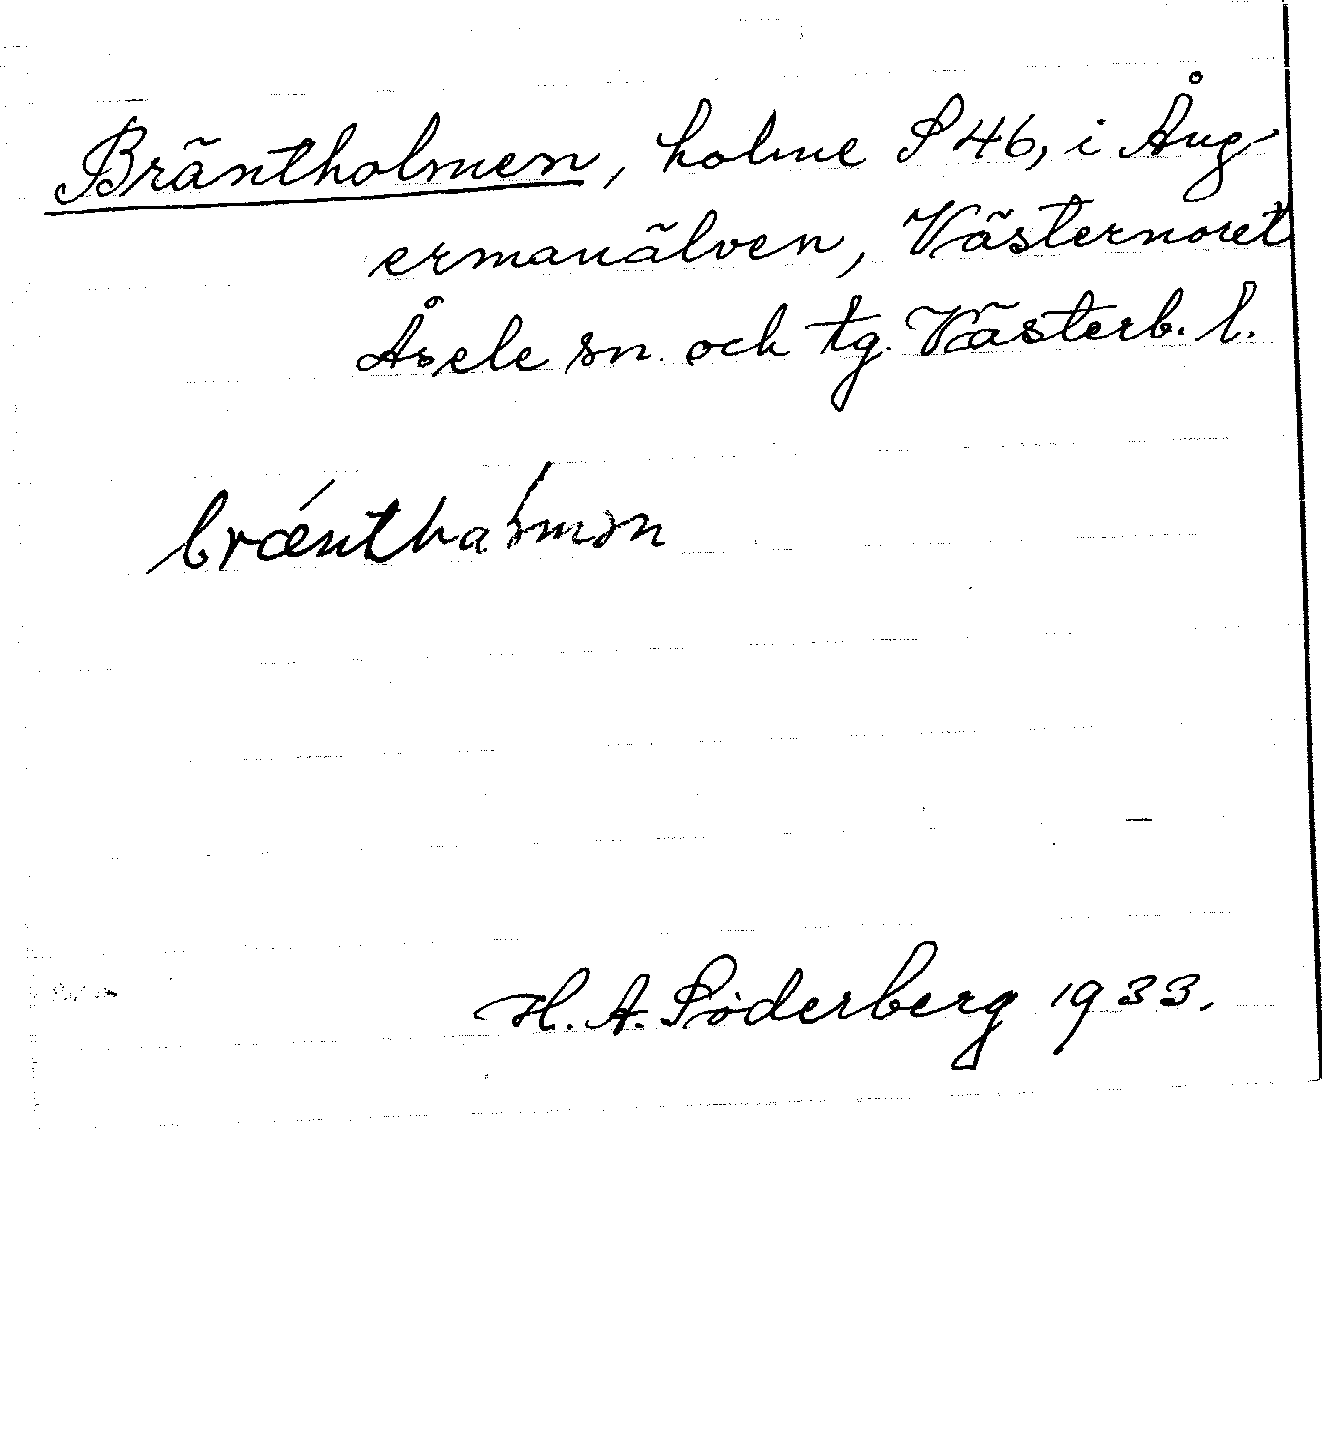 Bräntholmen, holme S 46, i Ång
ermanälven, Västernoret
Åsele sn. och tg. Västerb. l.
H. A. Söderberg 1933.